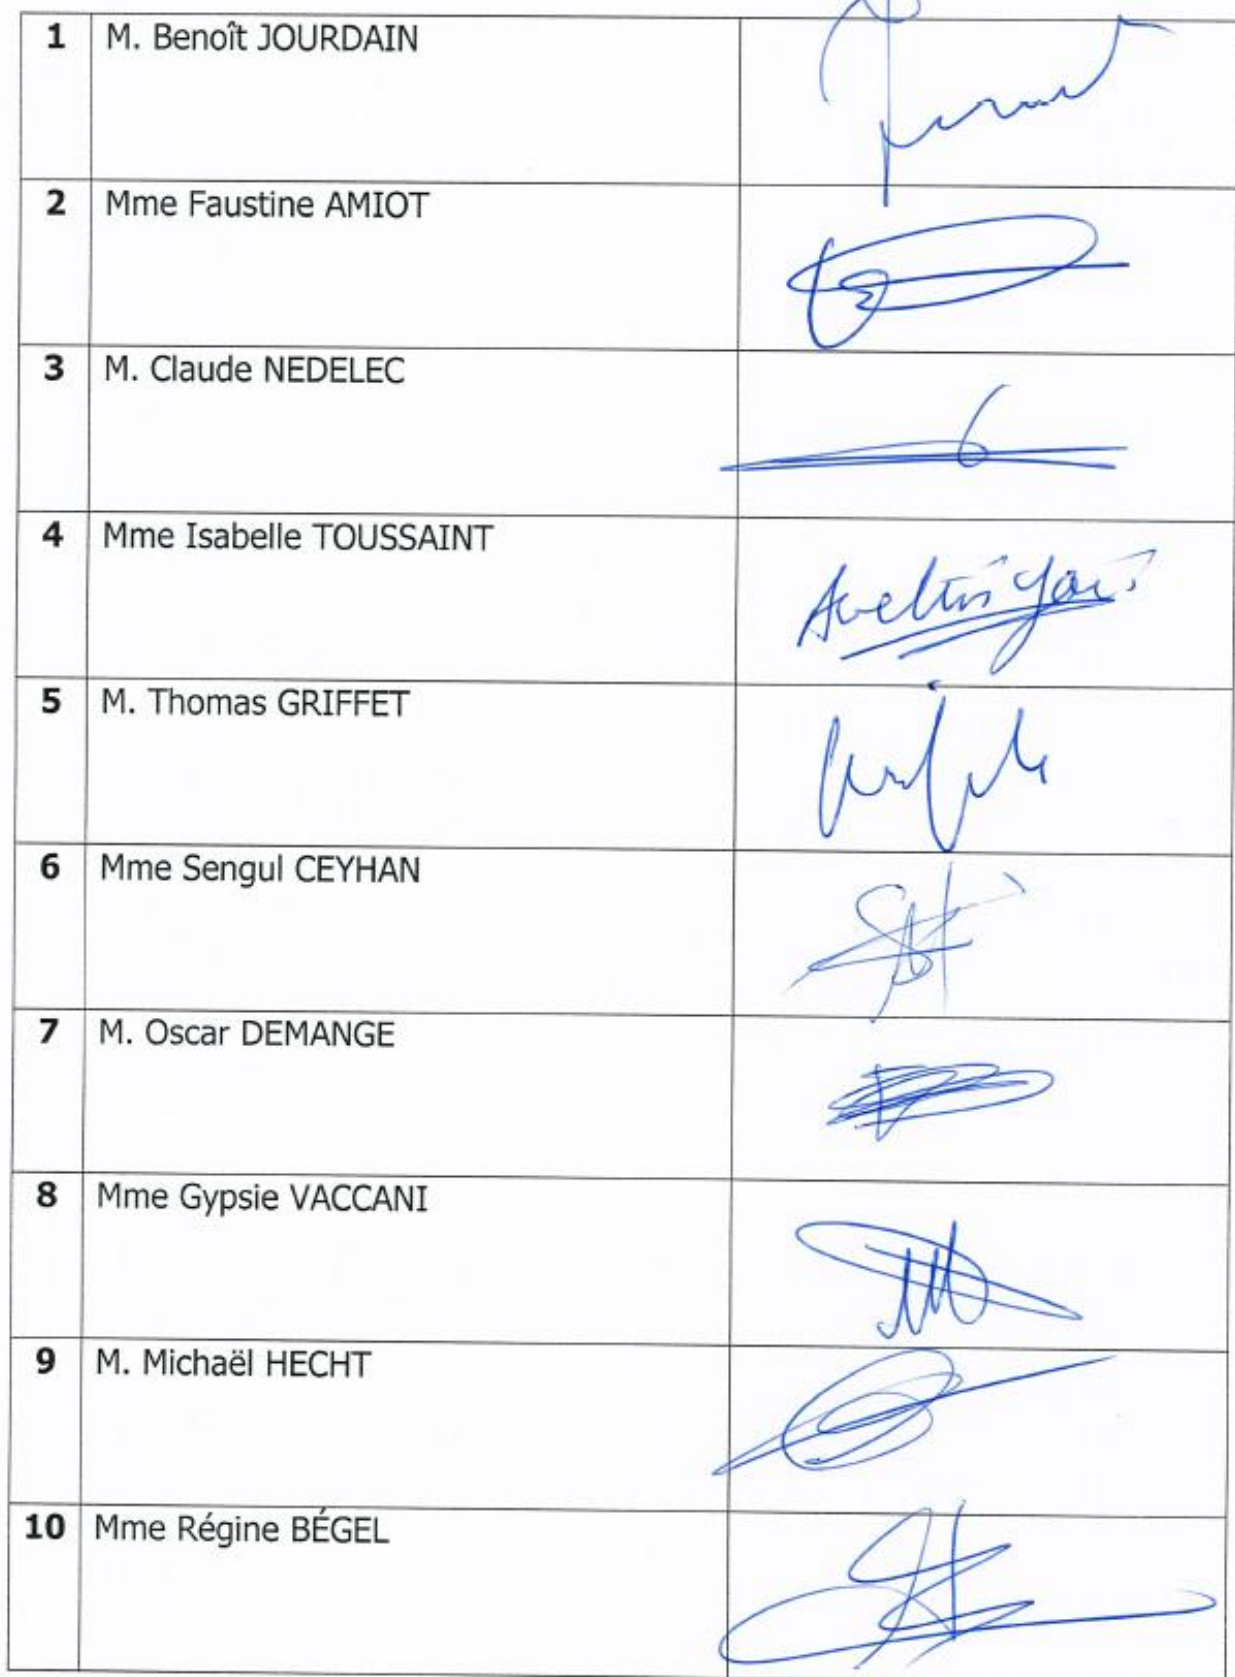 1 M. Benoît JOURDAIN
2 Mme Faustine AMIOT
3 M. Claude NEDELEC
4 Mme Isabelle TOUSSAINT
5 M. Thomas GRIFFET
6 Mme Sengul CEYHAN
7 M. Oscar DEMANGE
8 Mme Gypsie VACCANI
9 M. Michaël HECHT
10 Mme Régine BÉGEL